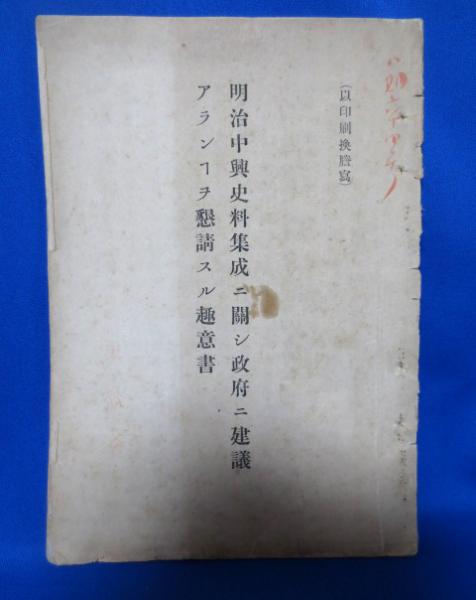 （以印刷換謄寫）
明治中興史料集成ニ關シ政府ニ建議
アランヿヲ懇請スル趣意書